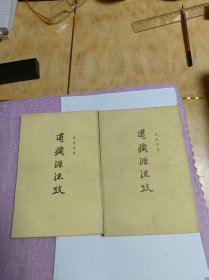 道藏源流攷
道藏源流攷